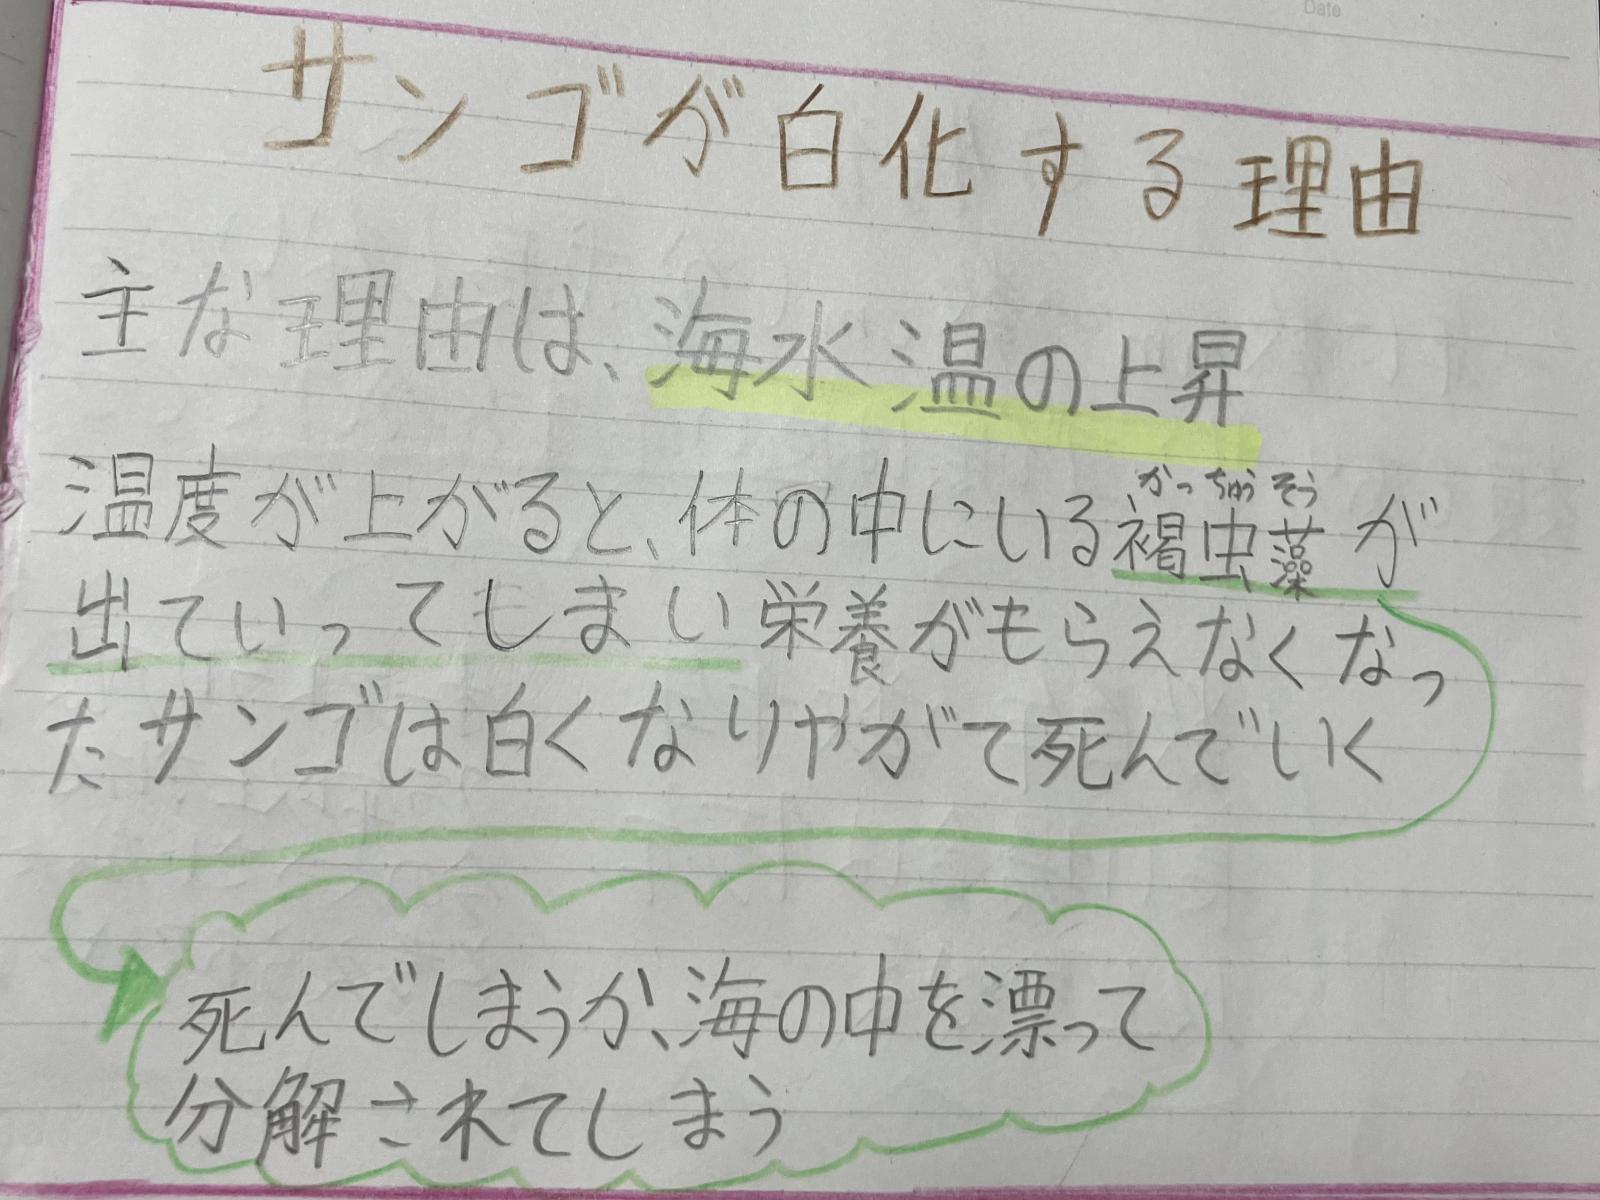 Date
サンゴが白化する理由
主な理由は、海水温の上昇
温度が上がると、体の中にいる褐虫藻が
かっちゅうそう
出ていってしまい栄養がもらえなくなっ
たサンゴは白くなりやがて死んでいく
死んでしまうか、海の中を漂って
分解されてしまう